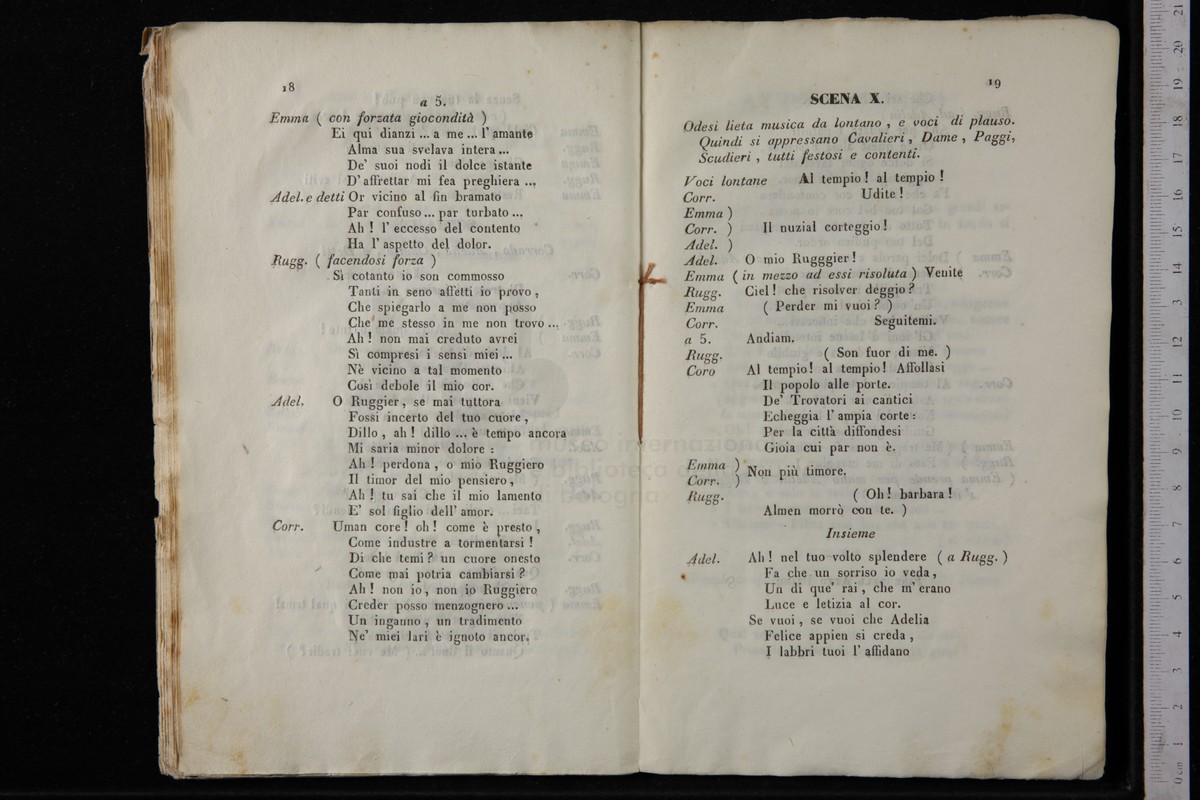 18
a 5.
Emma ( con forzata giocondità )
Ei qui dianzi ... a me ... l' amante
Alma sua svelava intera ...
De' suoi nodi il dolce istante
D' affrettar mi fea preghiera ...
Adel. e detti Or vicino al fin bramato
Par confuso ... par turbato ...
Ah ! l' eccesso del contento
Ha l' aspetto del dolor.
Rugg. ( facendosi forza )
Sì cotanto io son commosso
Tanti in seno affetti io provo ,
Che spiegarlo a me non posso
Che me stesso in me non trovo ...
Ah ! non mai creduto avrei
Sì compresi i sensi miei ...
Nè vicino a tal momento
Così debole il mio cor.
Adel. O Ruggier, se mai tuttora
Fossi incerto del tuo cuore ,
Dillo , ah ! dillo ... è tempo ancora
Mi saria minor dolore :
Ah ! perdona , o mio Ruggiero
Il timor del mio pensiero ,
Ah ! tu sai che il mio lamento
E' sol figlio dell' amor.
Corr. Uman core ! oh ! come è presto ,
Come industre a tormentarsi !
Di che temi ? un cuore onesto
Come mai potria cambiarsi ?
Ah ! non io , non io Ruggiero
Creder posso menzognero ...
Un inganno , un tradimento
Ne' miei lari è ignoto ancor.
19
SCENA X.
Odesi lieta musica da lontano , e voci di plauso.
Quindi si appressano Cavalieri , Dame , Paggi,
Scudieri , tutti festosi e contenti.
Voci lontane Al tempio ! al tempio !
Corr. Udite !
Emma )
Corr. ) Il nuzial corteggio !
Adel. )
Adel. O mio Rugggier !
Emma ( in mezzo ad essi risoluta ) Venite
Rugg. Ciel ! che risolver deggio ?
Emma ( Perder mi vuoi ? )
Corr. Seguitemi.
a 5. Andiam.
Rugg. ( Son fuor di me. )
Coro Al tempio ! al tempio ! Affollasi
Il popolo alle porte.
De' Trovatori ai cantici
Echeggia l' ampia corte :
Per la città diffondesi
Gioia cui par non è.
Emma )
Corr. ) Non più timore.
Rugg. ( Oh ! barbara !
Almen morrò con te. )
Insieme
Adel. Ah ! nel tuo volto splendere ( a Rugg. )
Fa che un sorriso io veda ,
Un di que' rai , che m' erano
Luce e letizia al cor.
Se vuoi , se vuoi che Adelia
Felice appien si creda ,
I labbri tuoi l' affidano